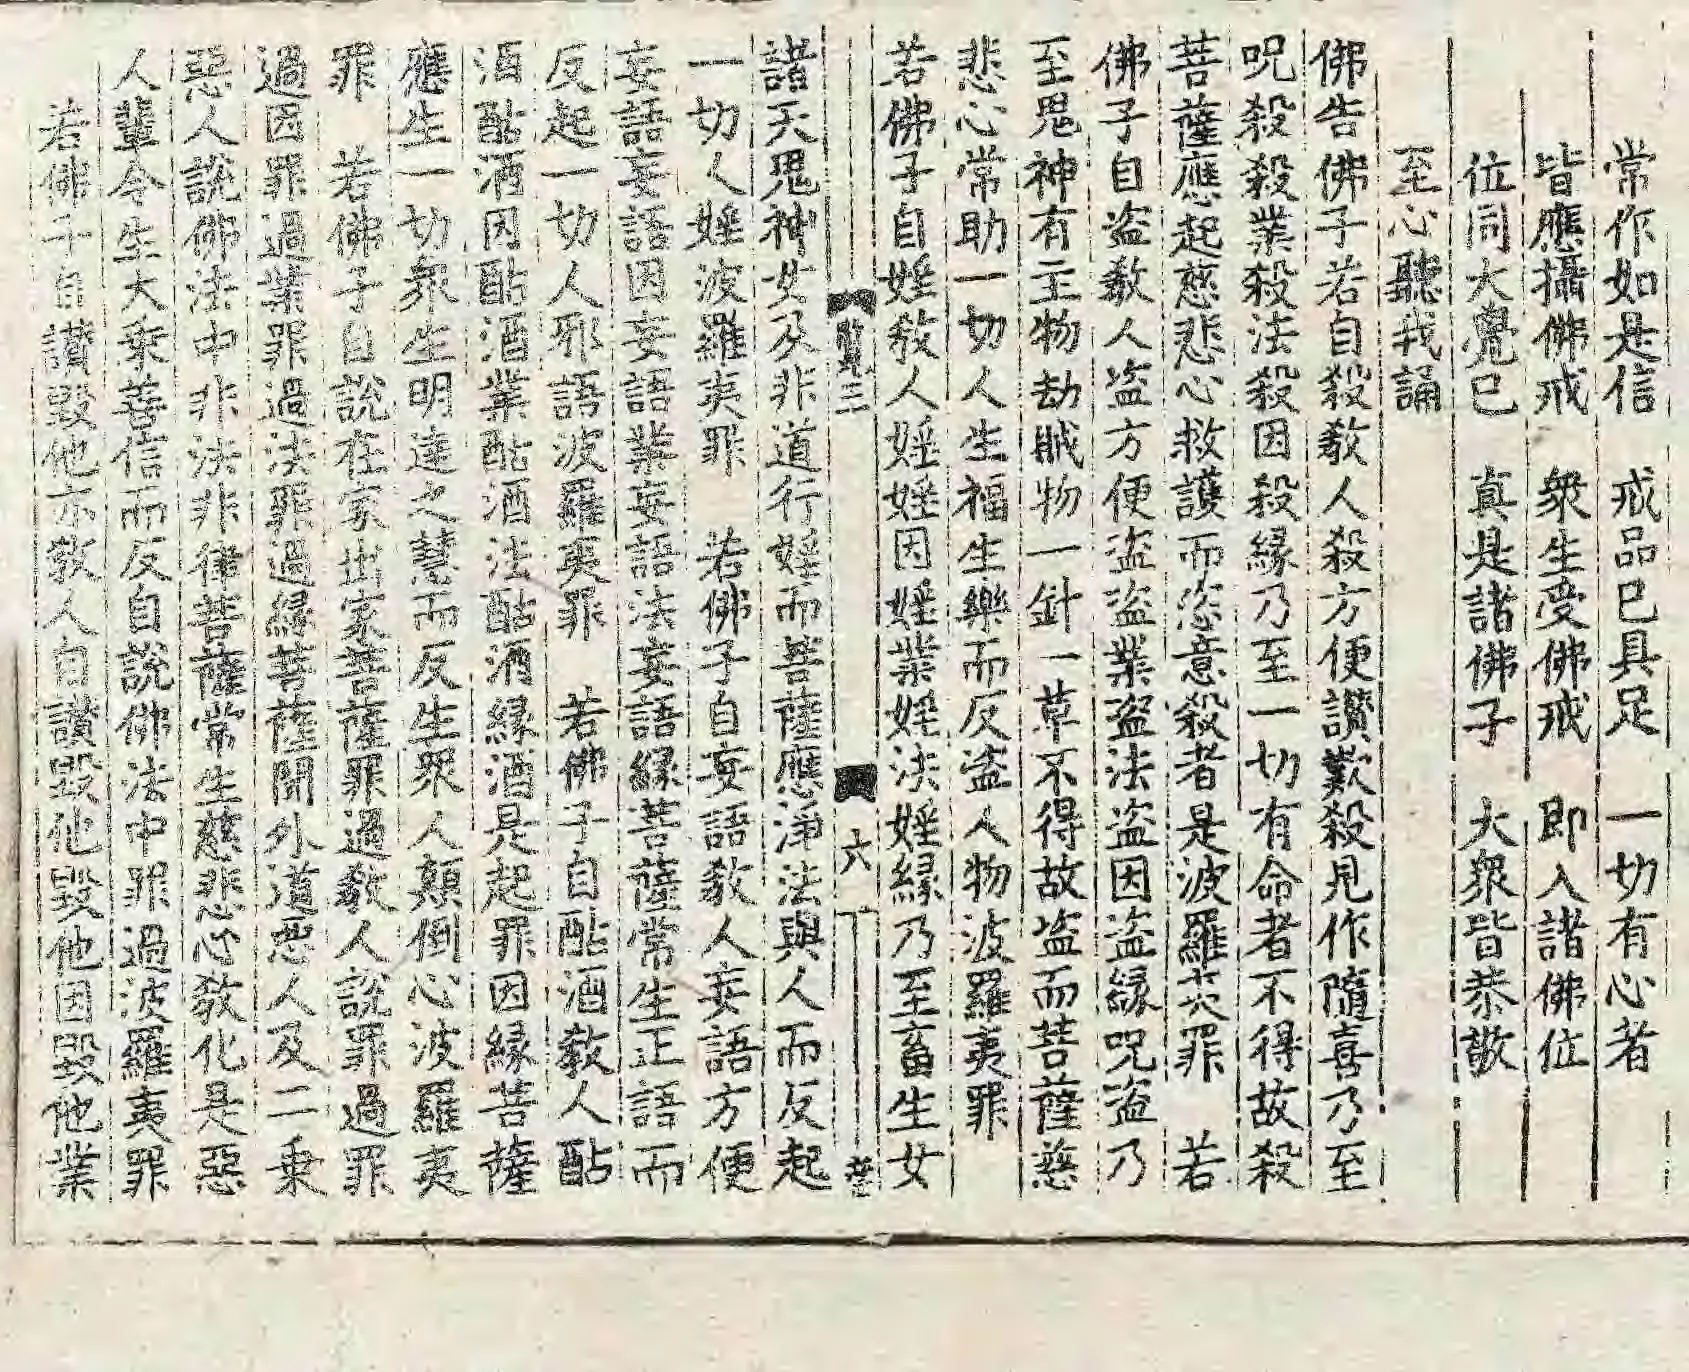 常作如是信　戒品已具足　一切有心者
皆應攝佛戒　衆生受佛戒　即入諸佛位
位同大覺已　真是諸佛子　大衆皆恭敬
至心聽我誦
佛告佛子若自殺教人殺方便讃歎殺見作隨喜乃至
呪殺殺業殺法殺因殺緣乃至一切有命者不得故殺
菩薩應起慈悲心救護而恣意殺者是波羅夷罪　若
佛子自盜教人盜方便盜盜業盜法盜因盜緣呪盜乃
至鬼神有主物劫賊物一針一草不得故盜而菩薩慈
悲心常助一切人生福生樂而反盜人物波羅夷罪
若佛子自婬教人婬婬因婬業婬法婬緣乃至畜生女
三　六
諸天鬼神女及非道行婬而菩薩應淨法與人而反起
一切人婬波羅夷罪　若佛子自妄語教人妄語方便
妄語妄語因妄語業妄語法妄語緣菩薩常生正語而
反起一切人邪語波羅夷罪　若佛子自酤酒教人酤
酒酤酒因酤酒業酤酒法酤酒緣酒是起罪因緣菩薩
應生一切衆生明達之慧而反生衆人顛倒心波羅夷
罪　若佛子自説在家出家菩薩罪過教人説罪過罪
過因罪過業罪過法罪過緣菩薩聞外道惡人及二乘
惡人説佛法中非法非律菩薩常生慈悲心教化是惡
人輩令生大乘善信而反自說佛法中罪過波羅夷罪
若佛子自讃毀他亦教人自讃毀他毀他因毀他業